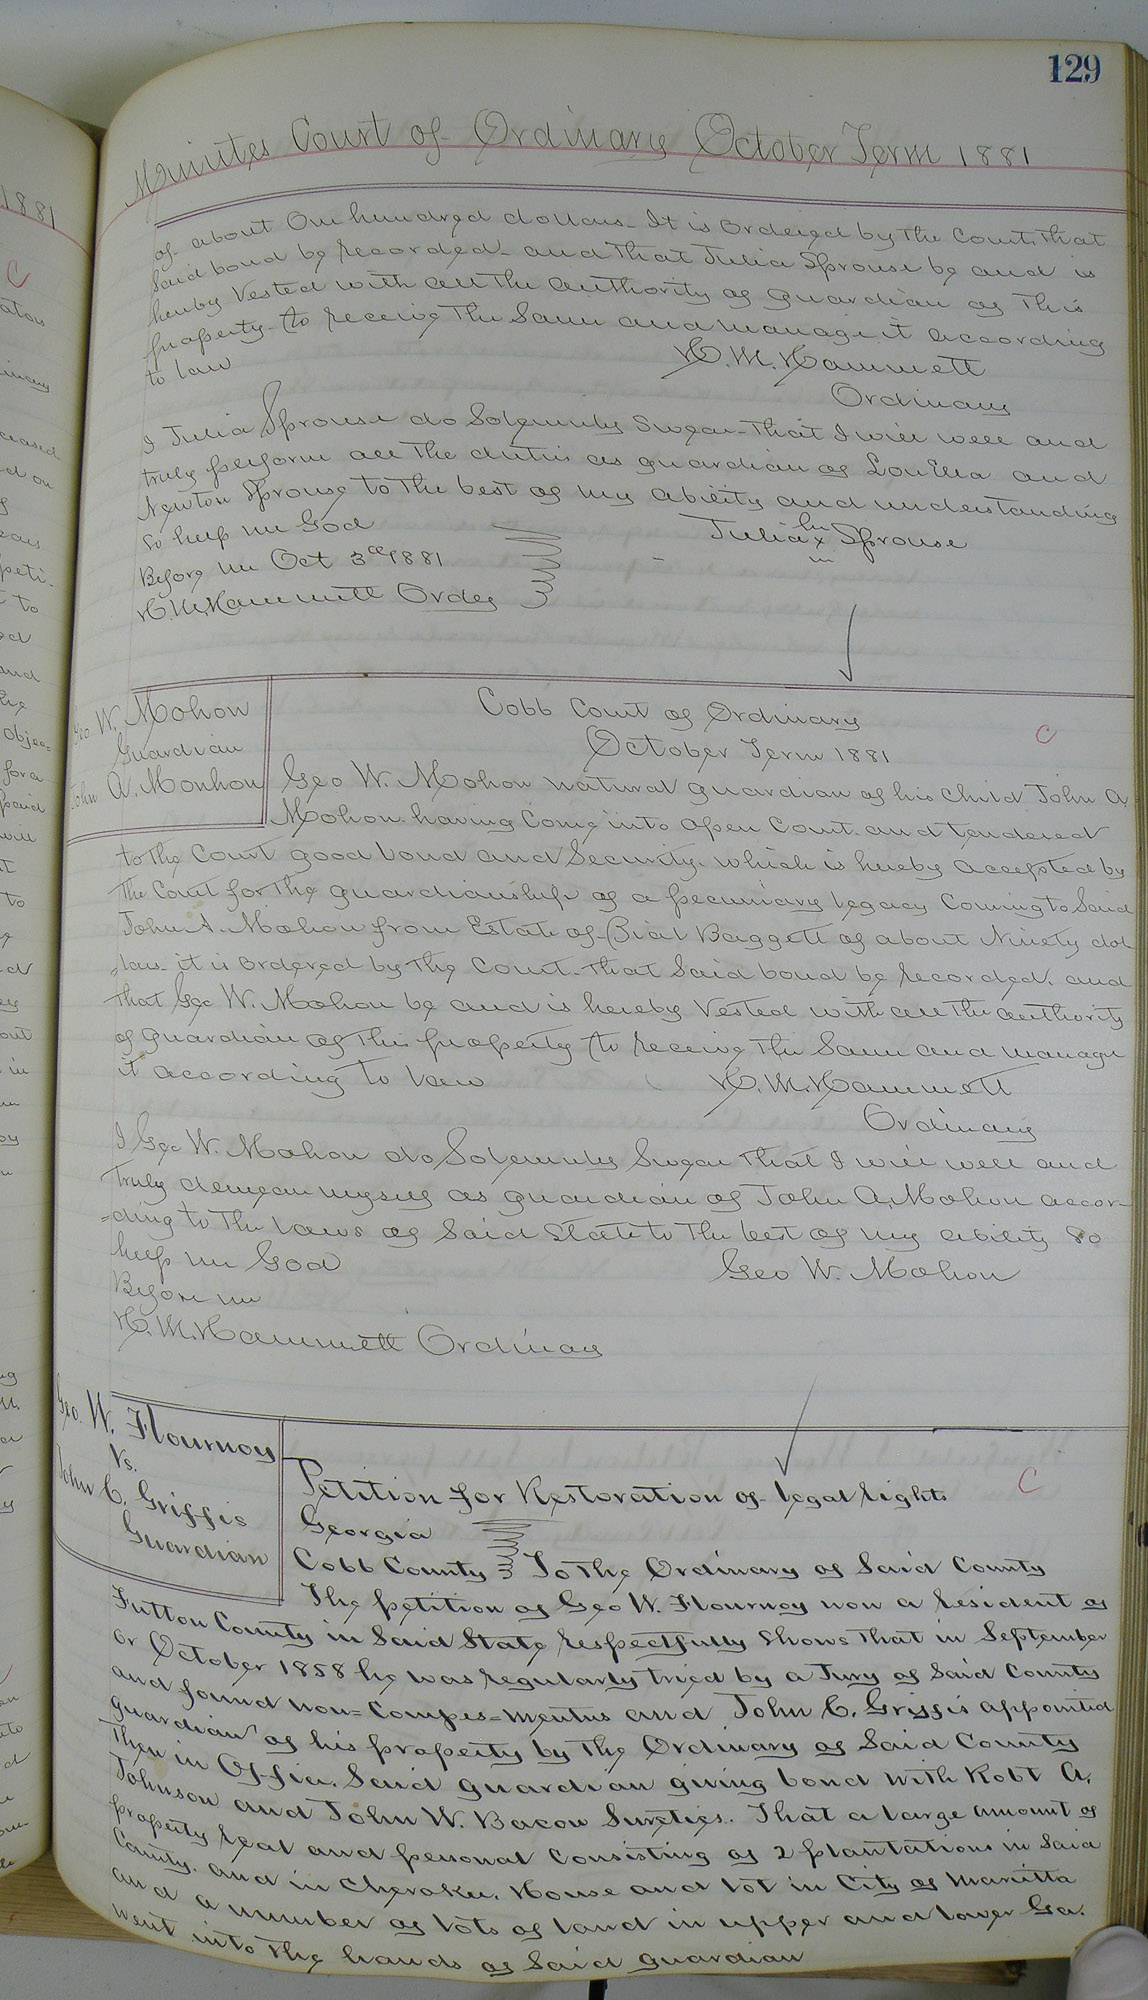 129
Minutes Court of Ordinary October Term 1881
of about One hundred dollars - It is ordered by the Court that
said bond be recorded - and that Julia Sprouse be and is
hereby vested with all the authority of guardian of this
property - to receive the same and manage it according
to law
H. M. Hammett
Ordinary
I Julia Sprouse do solemnly swear - that I will well and
truly perform all the duties as guardian of Lou Ella and
Newton Sprouse to the best of my ability and understanding
So help me God
Julia her x Sprouse
m
Before me Oct 3rd 1881
H. M. Hammett Ordry
Geo W. Mohon
Guardian
John A. Monhon
Cobb Court of Ordinary
October Term 1881
C
Geo W. Mohon natural guardian of his child John A
Mohon having come into open Court and tendered
to the Court good bond and security which is hereby accepted by
the Court for the guardianship of a pecuniary legacy coming to said
John A. Mohon from Estate of Baggett of about Ninety dol
lars - it is ordered by the Court - that said bond be recorded, and
that Geo W. Mohon be and is hereby vested with all the authority
of guardian of this property to receive the same and manage
it according to law
H. M. Hammett
Ordinary
I Geo W. Mohon do Solemnly swear that I will well and
truly demean myself as guardian of John A. Mohon accor-
=ding to the laws of said state to the best of my ability so
help me God
Geo W. Mohon
Before me
H. M. Hammett Ordinary
Geo. W. Flournoy
vs.
John C. Griffis
Guardian
Petition for Restoration of legal rights
C
Georgia
Cobb County } To the Ordinary of said County
The petition of Geo W. Flournoy now a resident of
Fulton County in said State respectfully shows that in September
or October 1858 he was regularly tried by a Jury of said County
and found non=Compes=mentus and John C. Griffis appointed
guardian of his property by the Ordinary of said County
then in Office. Said guardian giving bond with Robt A.
Johnson and John W. Bacon Sureties. That a large amount of
property real and personal consisting of 2 plantations in said
County, and in Cherokee, House and lot in City of Marietta
and a number of lots of land in upper and lower Ga.
went into the hands of said guardian